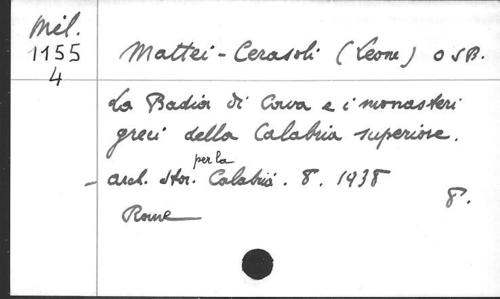 Mél.
1155
4
Mattei-Cerasoli (Leone) OSB.
La Badia di Cava e i monasteri
greci della Calabria superiore.
per la
arch. stor. Calabria. 8. 1938
8.
Rome